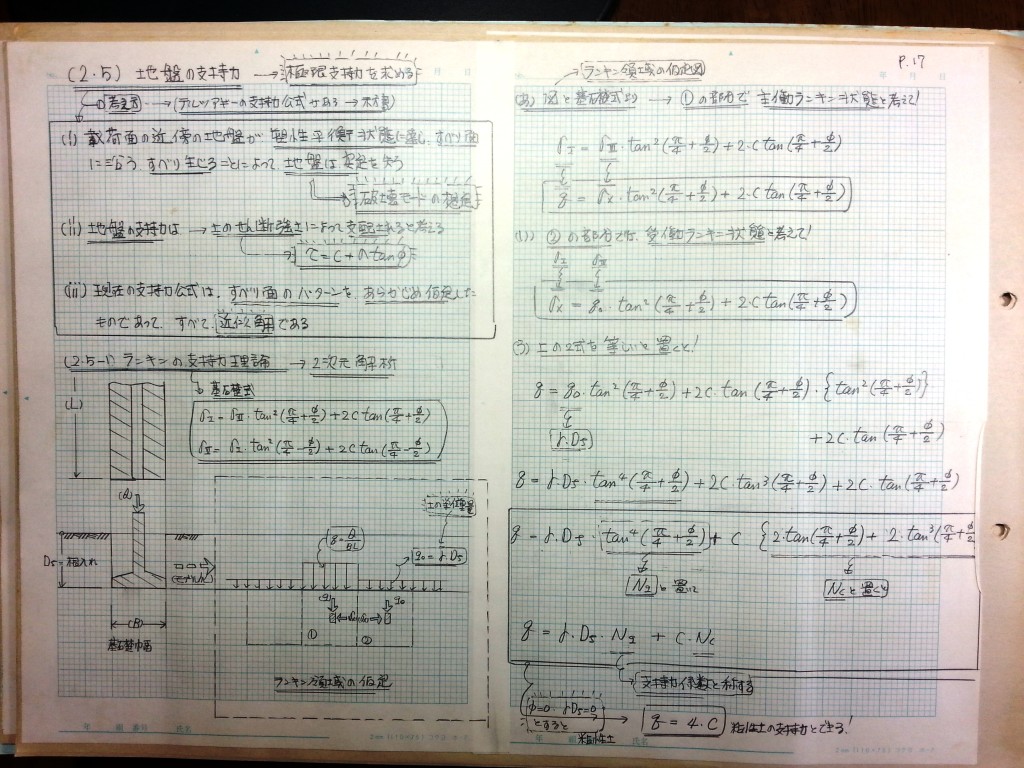 (2.5) 地盤の支持力 → 極限支持力を求める
考え方 → (テルツァギーの支持力公式がある →
(i) 載荷面の近傍の地盤が、塑性平衡状態に達し、すべり面
にそう、すべり生じることによって、地盤は 安定を失う
破壊モードの想定
(ii) 地盤の支持力は → 土のせん断強さによって支配されると考える
τ = C + σ tanφ
(iii) 現在の支持力公式は、すべり面のパターンを、あらかじめ仮定した
ものであって、すべて、近似解である
(2.5-1) ランキンの支持力理論 → 2次元解析
基礎式
σI = σII・tan²(π/4+φ/2) + 2C tan(π/4+φ/2)
σII = σI・tan²(π/4-φ/2) + 2C tan(π/4-φ/2)
(L)
(Q)
Df = 根入れ
(モデル化)
(B)
基礎巾面
q = Q/BL
q₀ = γ・Df
① ②
ランキン領域の仮定
P.17
ランキン領域の仮定図
図と基礎式より → ①の部分で 主働ランキン状態を考えて!
σI = σII・tan²(π/4+φ/2) + 2・C tan(π/4+φ/2)
q = σx・tan²(π/4+φ/2) + 2・C tan(π/4+φ/2)
②の部分では、受働ランキン状態を考えて!
σI σII
σx = q₀・tan²(π/4+φ/2) + 2・C tan(π/4+φ/2)
(3) 上の2式を等しいと置くと!
q = q₀・tan²(π/4+φ/2) + 2C・tan(π/4+φ/2)・{tan²(π/4+φ/2)}
γ・Df
+ 2・C・tan(π/4+φ/2)
q = γ・Df・tan⁴(π/4+φ/2) + 2C・tan³(π/4+φ/2) + 2C・tan(π/4+φ/2)
q = γ・Df・tan⁴(π/4+φ/2) + C {2・tan(π/4+φ/2) + 2・tan³(π/4+φ/2
Nq と置いて
Nc と置くと
q = γ・Df・Nq + C・Nc
支持力係数と称する
φ=0 γDf=0
とすると → q = 4・C 粘性土の支持力とできる!
粘性土
年 組 番号 氏名
年 組 氏名